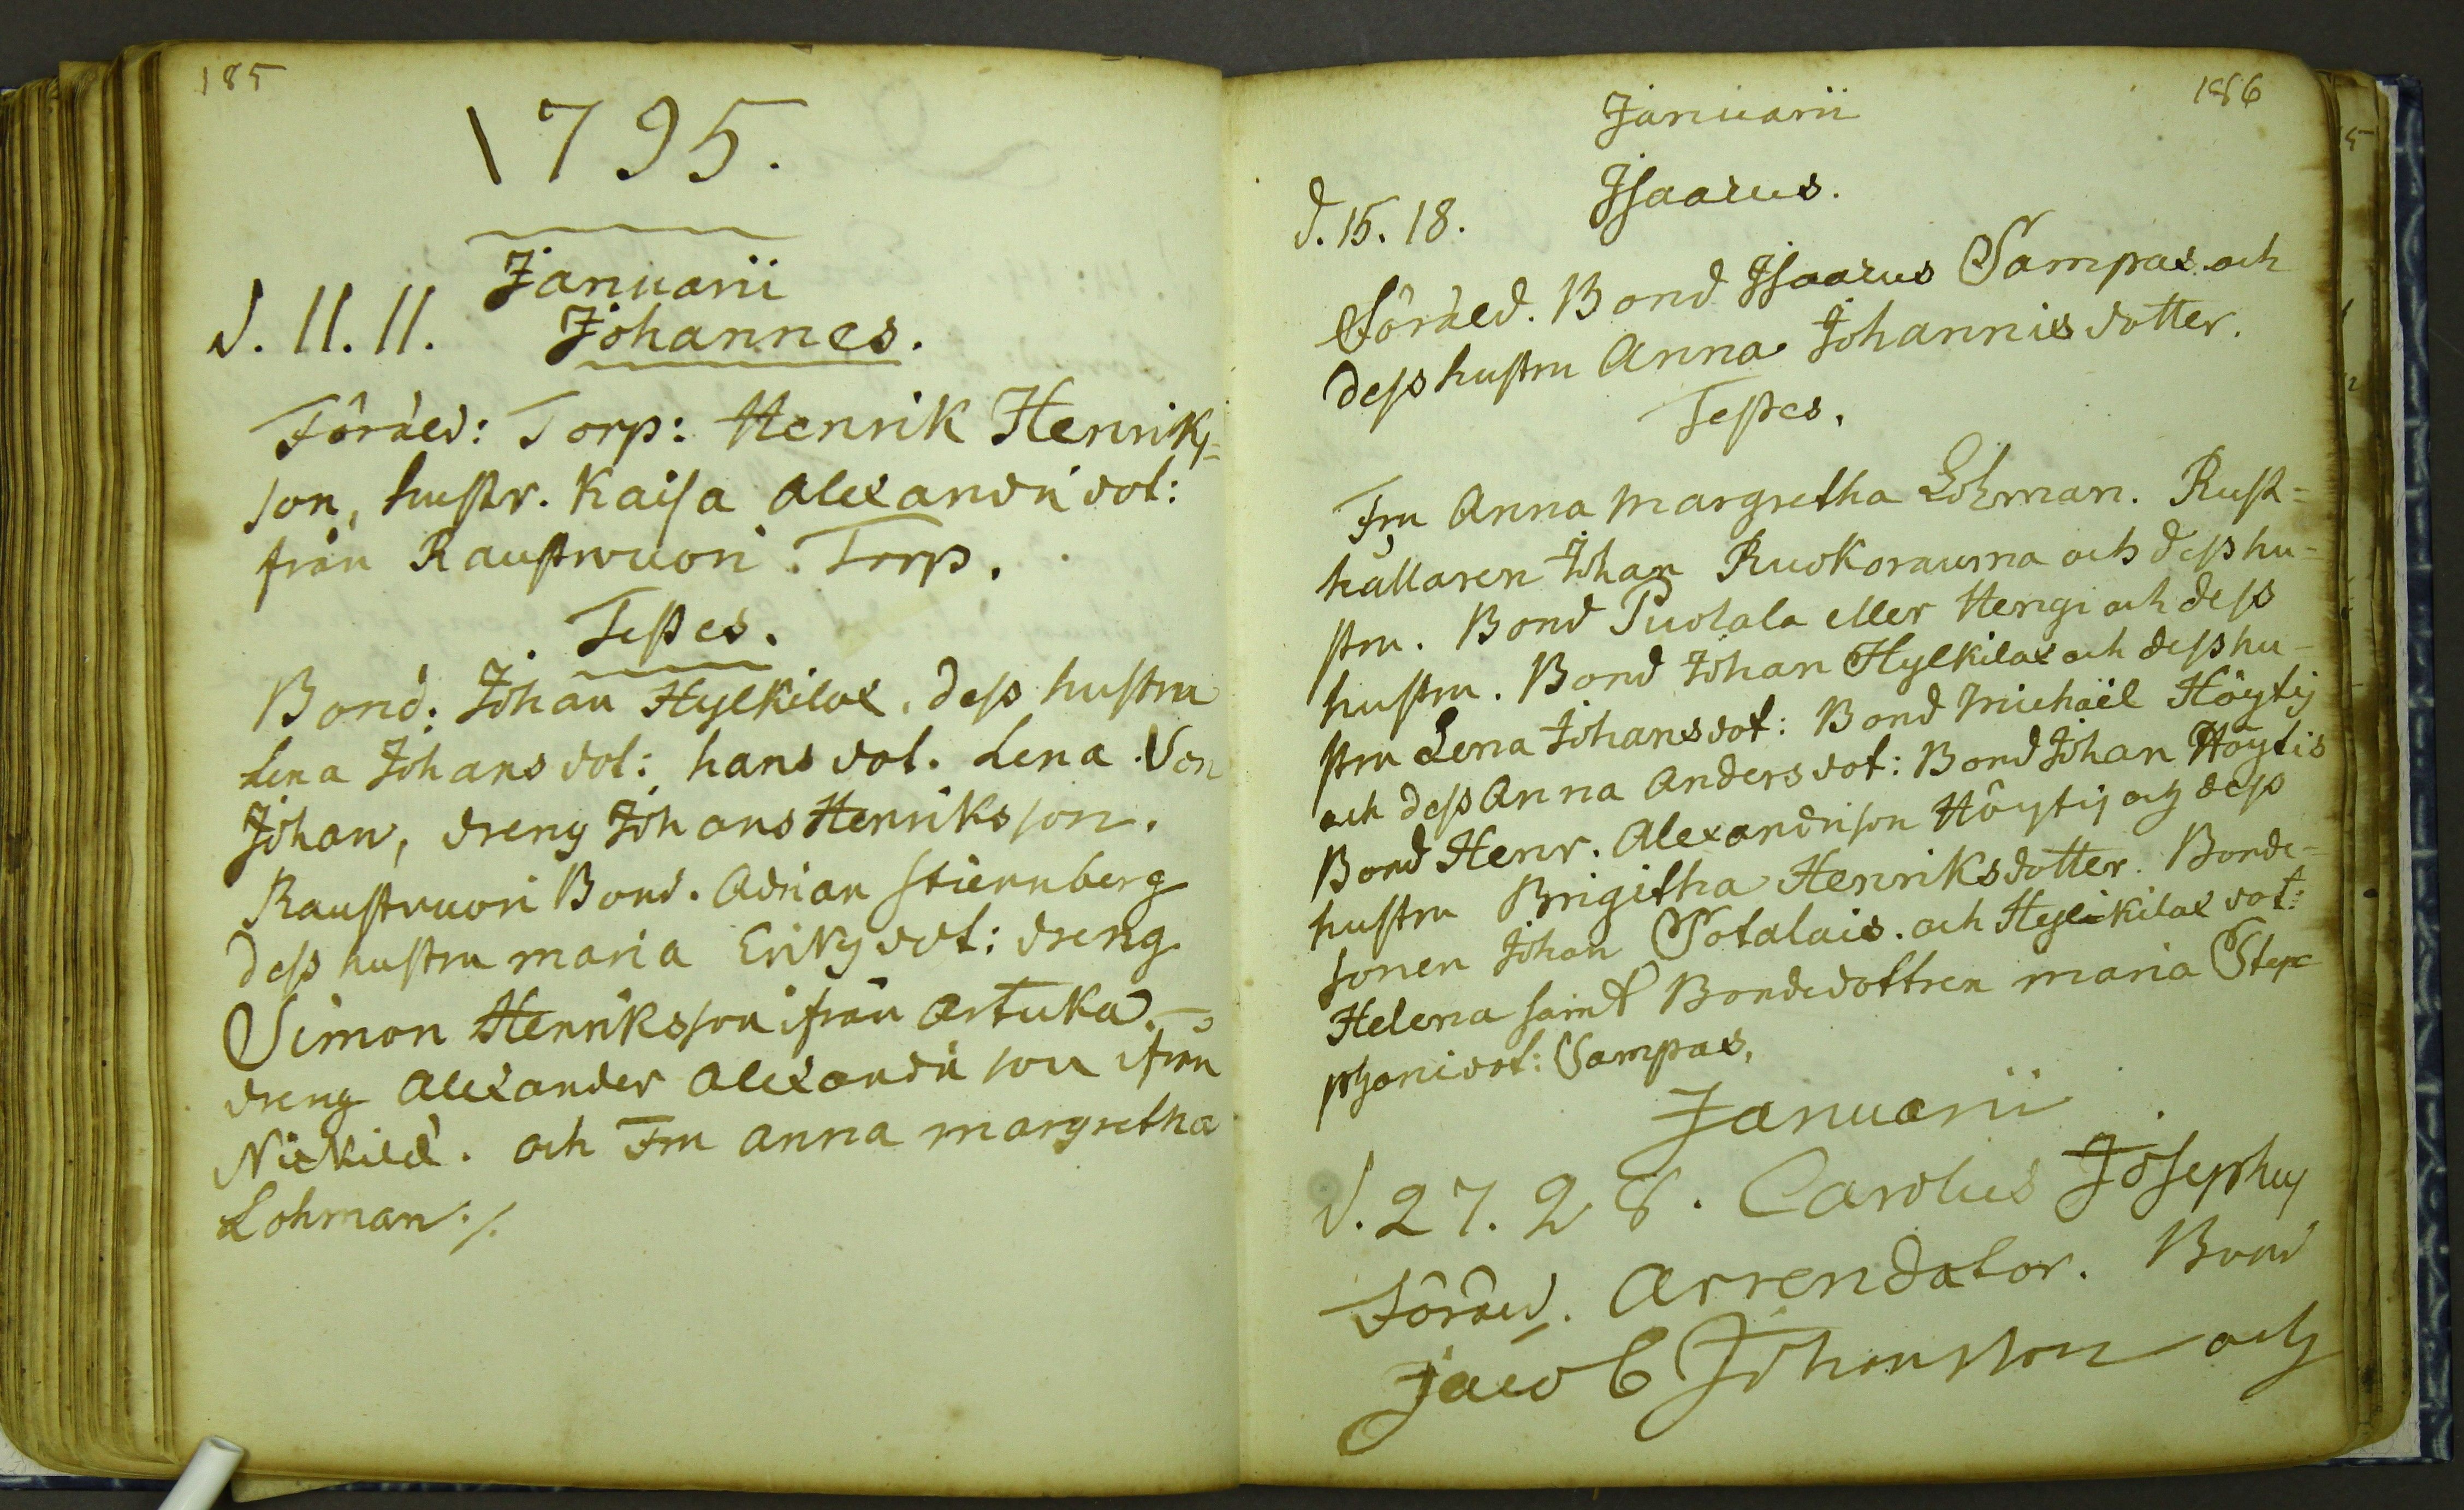 185
1795.
Januarii
d. 11. 11. Johannes.
Föräld: Torp: Henrik Henriks-
son, hustr. Kaisa Alexandri dot:
från Raustvuori Torp.
Testes.
Bond. Johan Hylkiläx. dess hustru
Lena Johans dot: hans dot. Lena. Son
Johan, dreng Johans Henriksson.
Raustvuori Bond. Adrian Stiernberg
dess hustru Maria Eriks dot: dreng
Simon Henriksson ifrån Artuka.
dreng Alexander Alexandri son ifrån
Nickilä. och Fru Anna Margretha
Lohman ./.
186
Januarii
d. 15. 18. Isaacus.
Föräld. Bond Isaacus Sampax och
dess hustru Anna Johannis dotter.
Testes.
Fru Anna Margretha Lohman. Rust=
hållaren Johan Ruokorauma och dess hu-
stru. Bond Puolala eller Hengi och dess
hustru. Bond Johan Hylkilax och dess hu-
stru Lena Johansdot: Bond Michaël Höytis
och dess Anna Andersdot: Bond Johan Höytis
Bond Henr. Alexandrison Höytis och dess
hustru Brigitha Henriksdotter. Bonde-
sonen Johan Sotalais. och Hylikilax dot:
Helena samt Bondedottren Maria Ste-
phanidot: Sampax.
Januarii
d. 27. 28. Carolus Josephus
Föräld. Arrendator. Bond
Jacob Johansson och